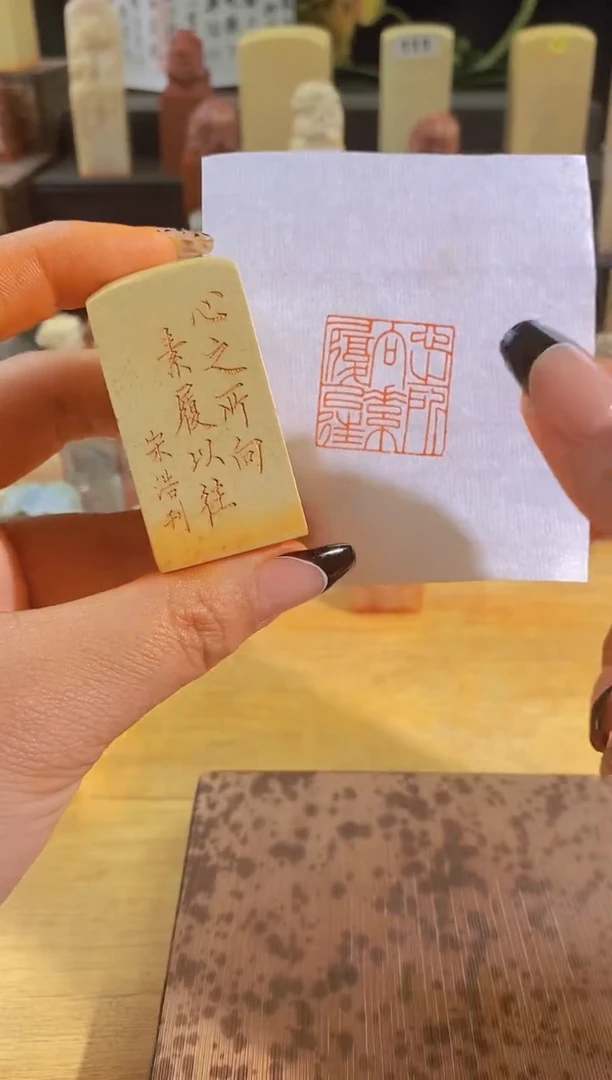 心之所向
素履以往
宋浩刊
之所
向素
履往